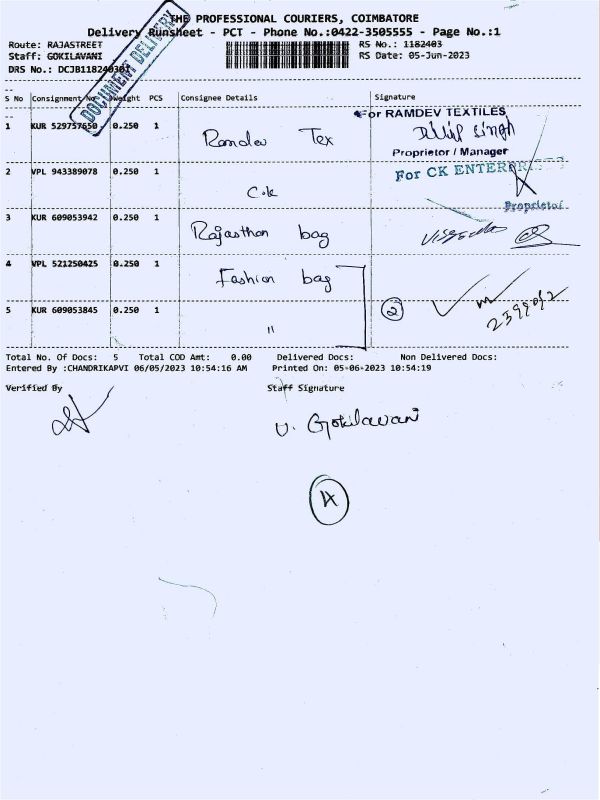 THE PROFESSIONAL COURIERS, COIMBATORE
Delivery Runsheet - PCT - Phone No.:0422-3505555 - Page No.:1
Route: RAJASTREET RS No.: 1182403
Staff: GOKILAVANI RS Date: 05-Jun-2023
DRS No.: DCJB118240301
DOCUMENT DELIVERY
S No Consignment No. Weight PCS Consignee Details Signature
For RAMDEV TEXTILES
1 KUR 529757650 0.250 1 Ramdev Tex Dilip Singh
Proprietor / Manager
2 VPL 943389078 0.250 1 C.k For CK ENTERPRISES
Proprietor
3 KUR 609053942 0.250 1 Rajasthan bag
4 VPL 521250425 0.250 1 Fashion bag
5 KUR 609053845 0.250 1 " 2
Total No. Of Docs: 5 Total COD Amt: 0.00 Delivered Docs: Non Delivered Docs:
Entered By :CHANDRIKAPVI 06/05/2023 10:54:16 AM Printed On: 05-06-2023 10:54:19
Verified By Staff Signature
U. Gokilavani